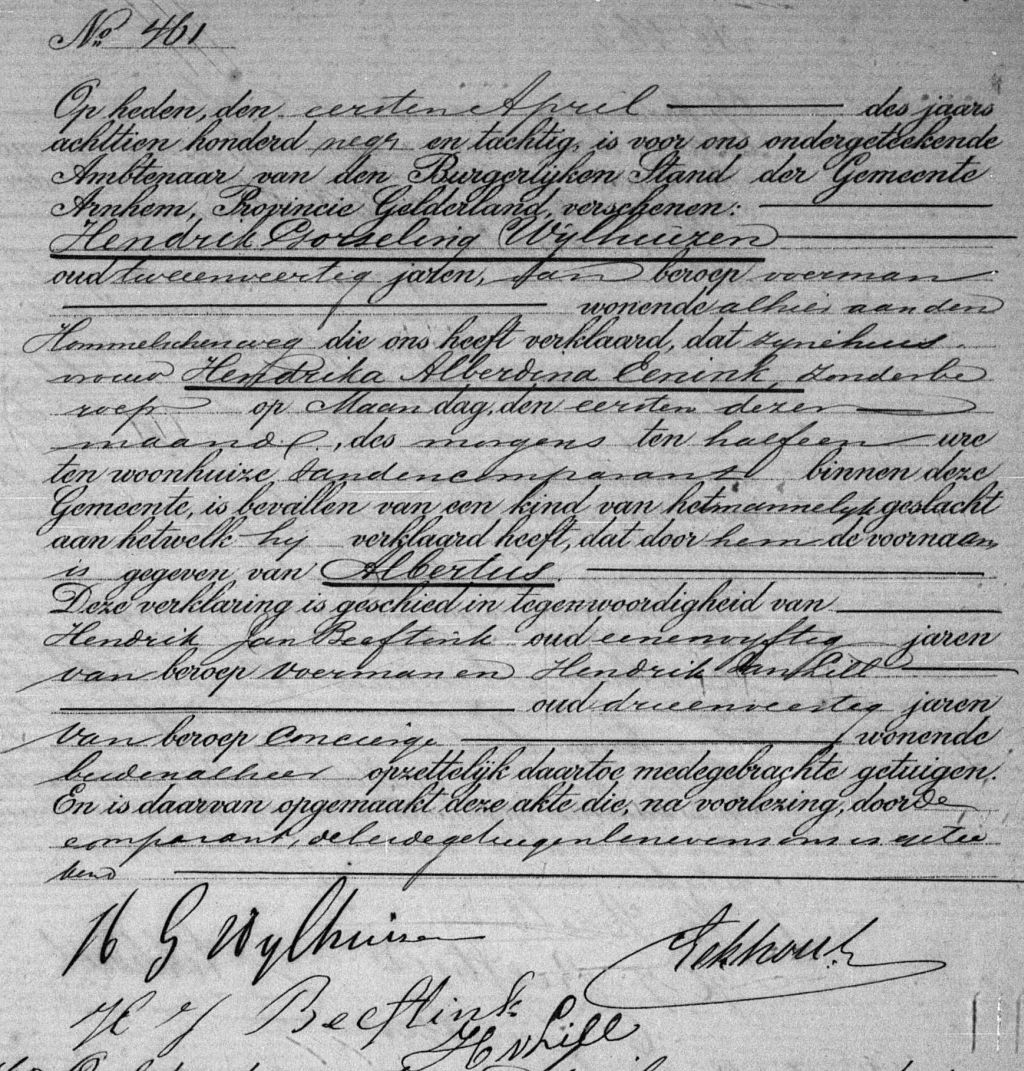 No 461
Op heden, den eersten April des jaars
achttien honderd negen en tachtig, is voor ons ondergeteekende
Ambtenaar van den Burgerlijken Stand der Gemeente
Arnhem, Provincie Gelderland, verschenen:
Hendrik Gorseling Wylhuizen
oud tweeenveertig jaren, van beroep voerman
wonende alhier aan den
Hommelschenweg die ons heeft verklaard, dat zyne huis
vrouw Hendrika Alberdina Eenink, zonder be
roep op Maandag, den eersten dezer
maand, des morgens ten half een ure
ten woonhuize van den comparant binnen deze
Gemeente, is bevallen van een kind van het mannelyk geslacht
aan hetwelk hy verklaard heeft, dat door hem de voornaam
is gegeven van Albertus.
Deze verklaring is geschied in tegenwoordigheid van
Hendrik Jan Beeftink oud eenenvyftig jaren
van beroep voerman en Hendrik van Lill
oud drieenveertig jaren
van beroep concierge wonende
beiden alhier opzettelijk daartoe medegebrachte getuigen.
En is daarvan opgemaakt deze akte die, na voorlezing, door de
comparant, de beide getuigen benevens ons is getee
kend
H G Wylhuizen
H J Beeftink
H v Lill